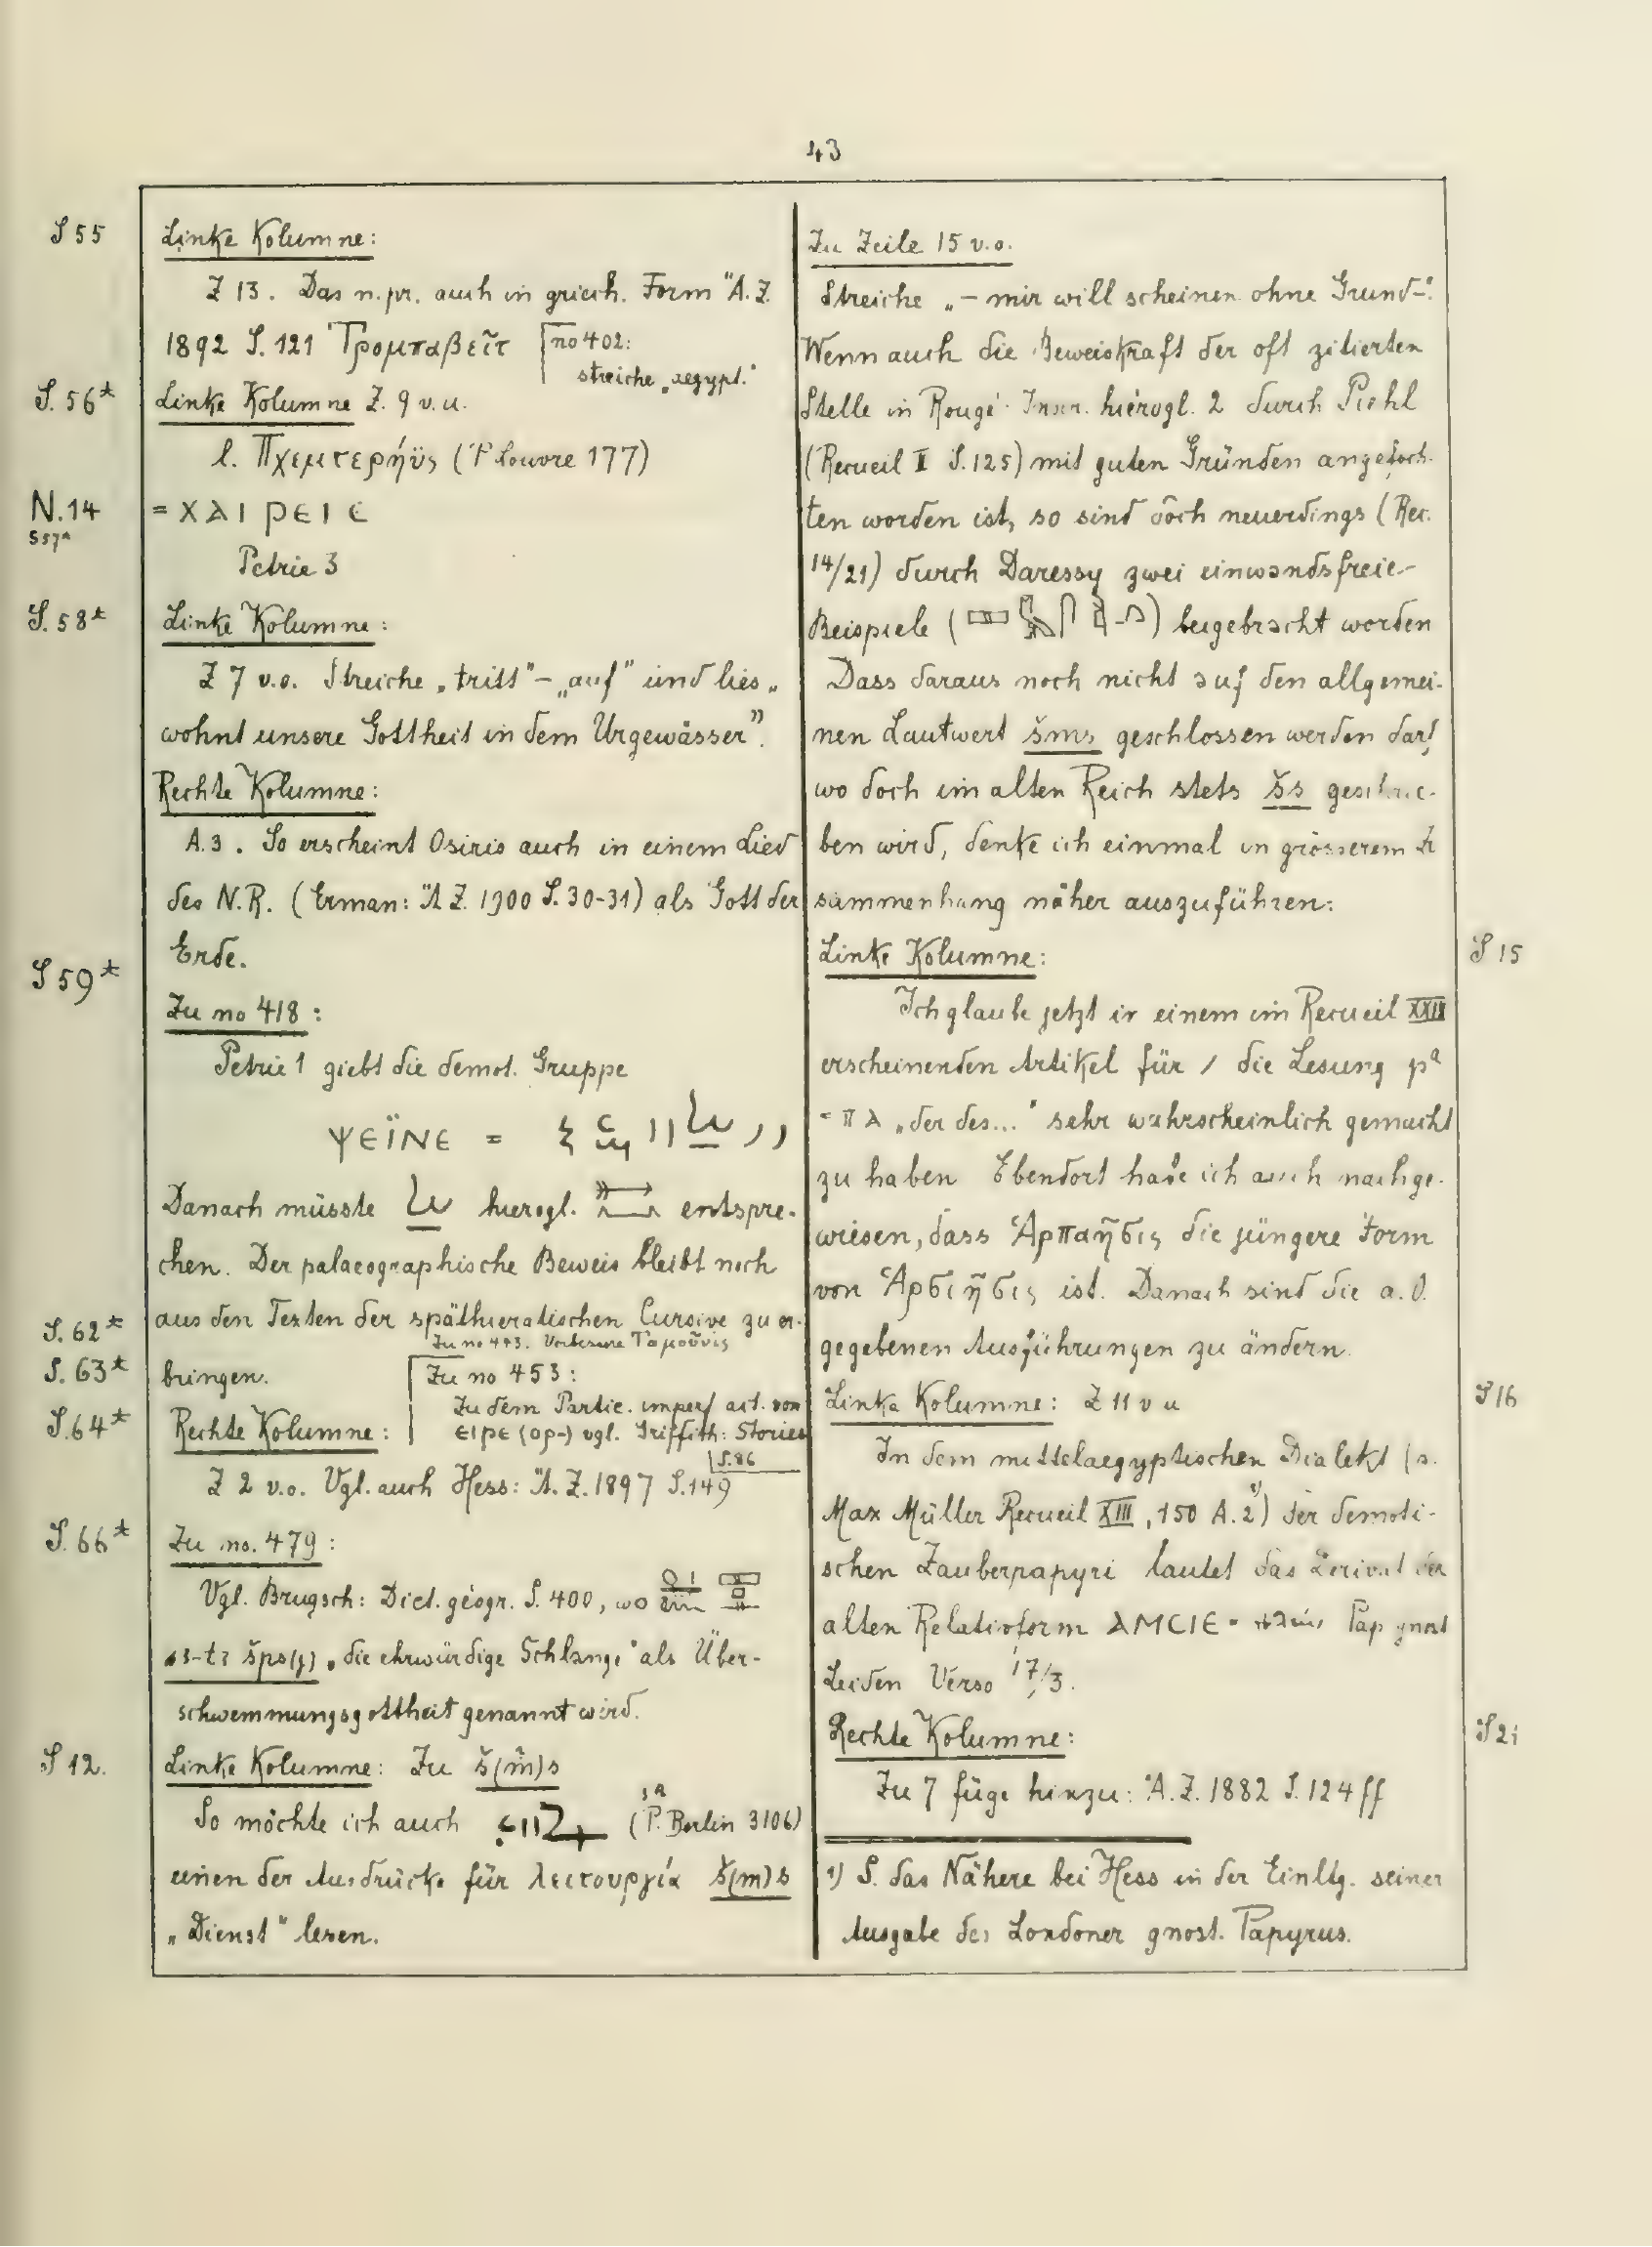 43
S 55
Linke Kolumne:
Z 13. Das n. pr. auch in griech. Form Ä. Z.
1892 S. 121 Τρομπαβεῖτ
no 402:
streiche „aegypt."
S. 56*
Linke Kolumne Z. 9 v. u.
l. Πχεμτερήϋς (P Louvre 177)
N. 14
S 57*
= ⲬⲀⲒⲢⲈⲒⲤ
Petrie 3
S. 58*
Linke Kolumne:
Z 7 v. o. Streiche „tritt" – „auf" und lies „
wohnt unsere Gottheit in dem Urgewässer".
Rechte Kolumne:
A. 3. So erscheint Osiris auch in einem Lied
des N. R. (Erman: Ä Z. 1900 S. 30-31) als Gott der
Erde.
S 59*
Zu no 418:
Petrie 1 giebt die demot. Gruppe
ⲮⲈⲒ̈ⲚⲈ =
Danach müsste hierogl. entspre-
chen. Der palaeographische Beweis bleibt noch
aus den Texten der späthieratischen Cursive zu er-
S. 62*
Zu no 443. Verbessre Ταμοῦνις
S. 63*
bringen.
Zu no 453:
Zu dem Partic. imperf act. von
ⲈⲒⲢⲈ (ⲟⲣ-) vgl. Griffith: Stories
S. 86
S. 64*
Rechte Kolumne:
Z 2 v. o. Vgl. auch Hess: Ä. Z. 1897 S. 149
S. 66*
Zu no. 479:
Vgl. Brugsch: Dict. géogr. S. 400, wo
šps(j) „die ehrwürdige Schlange" als Über-
schwemmungsgottheit genannt wird.
S 12.
Linke Kolumne: Zu š(m)s
So möchte ich auch (P. Berlin 3106)
einen der Ausdrücke für λειτουργία š(m)s
„Dienst" lesen.
Zu Zeile 15 v. o.
Streiche „– mir will scheinen ohne Grund –".
Wenn auch die Beweiskraft der oft zitierten
Stelle in Rougé Inscr. hiérogl. 2 durch Piehl
(Recueil II S. 125) mit guten Gründen angefoch-
ten worden ist, so sind doch neuerdings (Rec.
14/21) durch Daressy zwei einwandsfreie
Beispiele ( ) beigebracht worden
Dass daraus noch nicht auf den allgemei-
nen Lautwert šms geschlossen werden darf
wo doch im alten Reich stets šs geschrie-
ben wird, denke ich einmal in grösserem
sammenhang näher auszuführen:
S 15
Linke Kolumne:
Ich glaube jetzt in einem im Recueil XXII
erscheinenden Artikel für / die Lesung pa
= ⲠⲀ „der des..." sehr wahrscheinlich gemacht
zu haben Ebendort habe ich auch nachge-
wiesen, dass Ἁρπαῆσις die jüngere Form
von Ἁρσιῆσις ist. Danach sind die a. O.
gegebenen Ausführungen zu ändern.
S 16
Linke Kolumne: Z 11 v u
In dem mittelaegyptischen Dialekt (s.
Max Müller Recueil XIII, 150 A. 2 1)) der demoti-
schen Zauberpapyri lautet das Derivat der
alten Relativform ⲀⲘⲤⲒⲈ = Pap gnost
Leiden Verso 17/3.
S 21
Rechte Kolumne:
Zu 7 füge hinzu: Ä. Z. 1882 S. 124 ff
1) S. das Nähere bei Hess in der Einltg. seiner
Ausgabe des Londoner gnost. Papyrus.